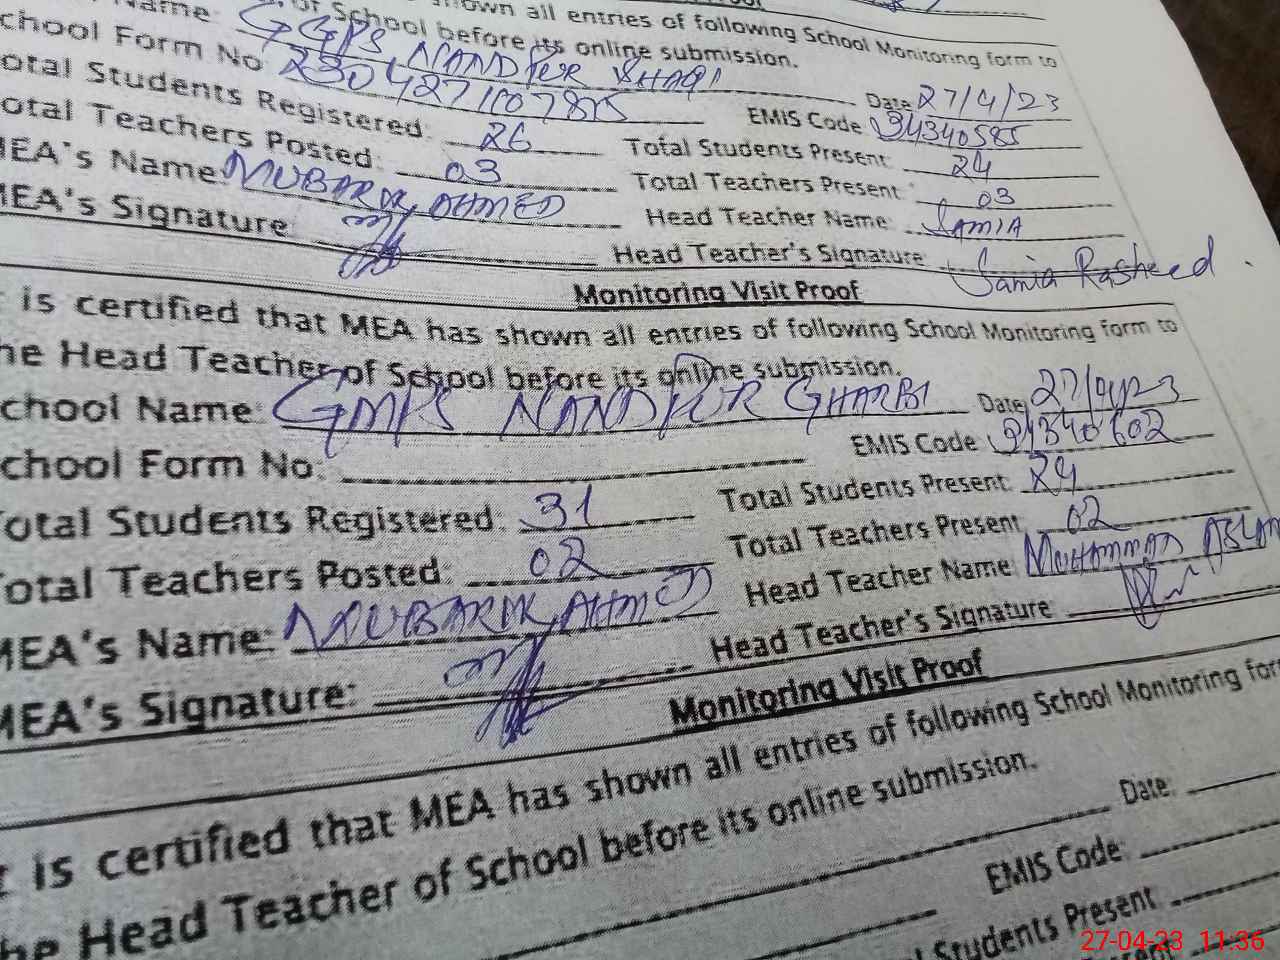 shown all entries of following School Monitoring form to
of School before its online submission.
Name: GGPS NANDPUR SHARQI Date 27/4/23
chool Form No 230427110787815 EMIS Code 34340585
otal Students Registered: 26 Total Students Present: 24
otal Teachers Posted: 03 Total Teachers Present: 03
MEA's Name: MUBARIK AHMED Head Teacher Name: SAMIA
MEA's Signature: Head Teacher's Signature: Samia Rasheed .
Monitoring Visit Proof
t is certified that MEA has shown all entries of following School Monitoring form to
he Head Teacher of School before its online submission.
chool Name: GMPS NANDPUR GHARBI Date 27/04/23
chool Form No: EMIS Code 34340602
otal Students Registered: 31 Total Students Present: 24
otal Teachers Posted: 02 Total Teachers Present 02
MEA's Name: MUBARIK AHMED Head Teacher Name: MUHAMMAD ASLAM
MEA's Signature: Head Teacher's Signature
Monitoring Visit Proof
t is certified that MEA has shown all entries of following School Monitoring for
he Head Teacher of School before its online submission.
Date:
EMIS Code:
l Students Present
27-04-23 11:36